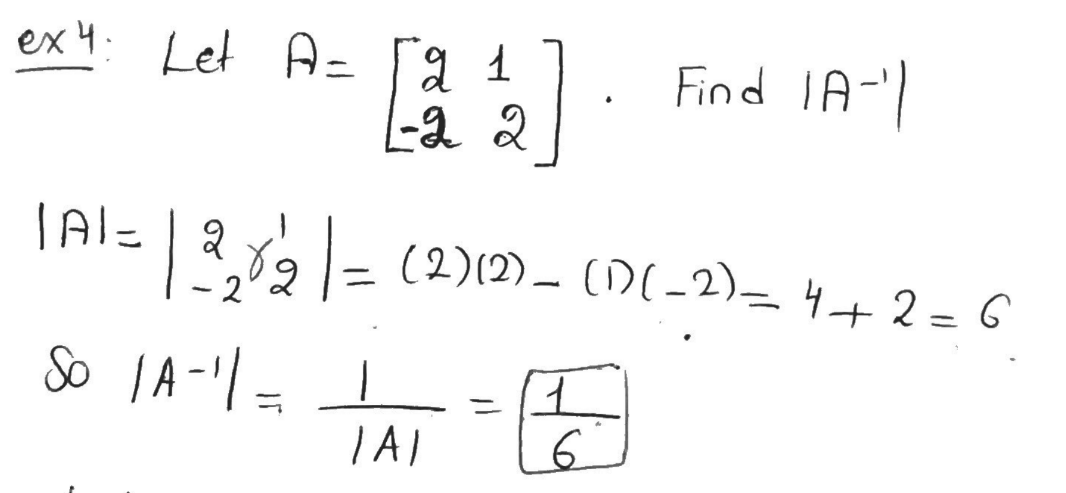 ex 4: Let A = [2 1; -2 2]. Find |A⁻¹|
|A| = |2 1; -2 2| = (2)(2) - (1)(-2) = 4 + 2 = 6
So |A⁻¹| = 1/|A| = 1/6